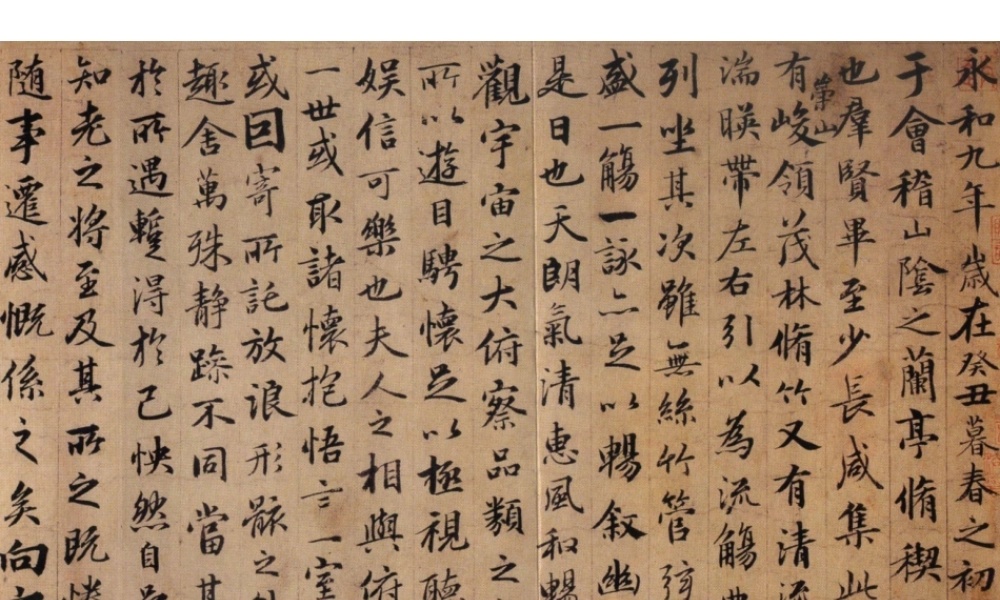 永和九年歲在癸丑暮春之初
于會稽山陰之蘭亭脩稧
也羣賢畢至少長咸集此
崇山
有峻領茂林脩竹又有清流
湍暎帶左右引以為流觴
列坐其次雖無絲竹管弦
盛一觴一詠亦足以暢敘幽
是日也天朗氣清惠風和暢
觀宇宙之大俯察品類之
所以遊目騁懷足以極視聽
娛信可樂也夫人之相與俯
一世或取諸懷抱悟言一室
或因寄所託放浪形骸之
趣舍萬殊静躁不同當其
於所遇蹔得於己怏然自
知老之將至及其所之既惓
随事遷感慨係之矣向